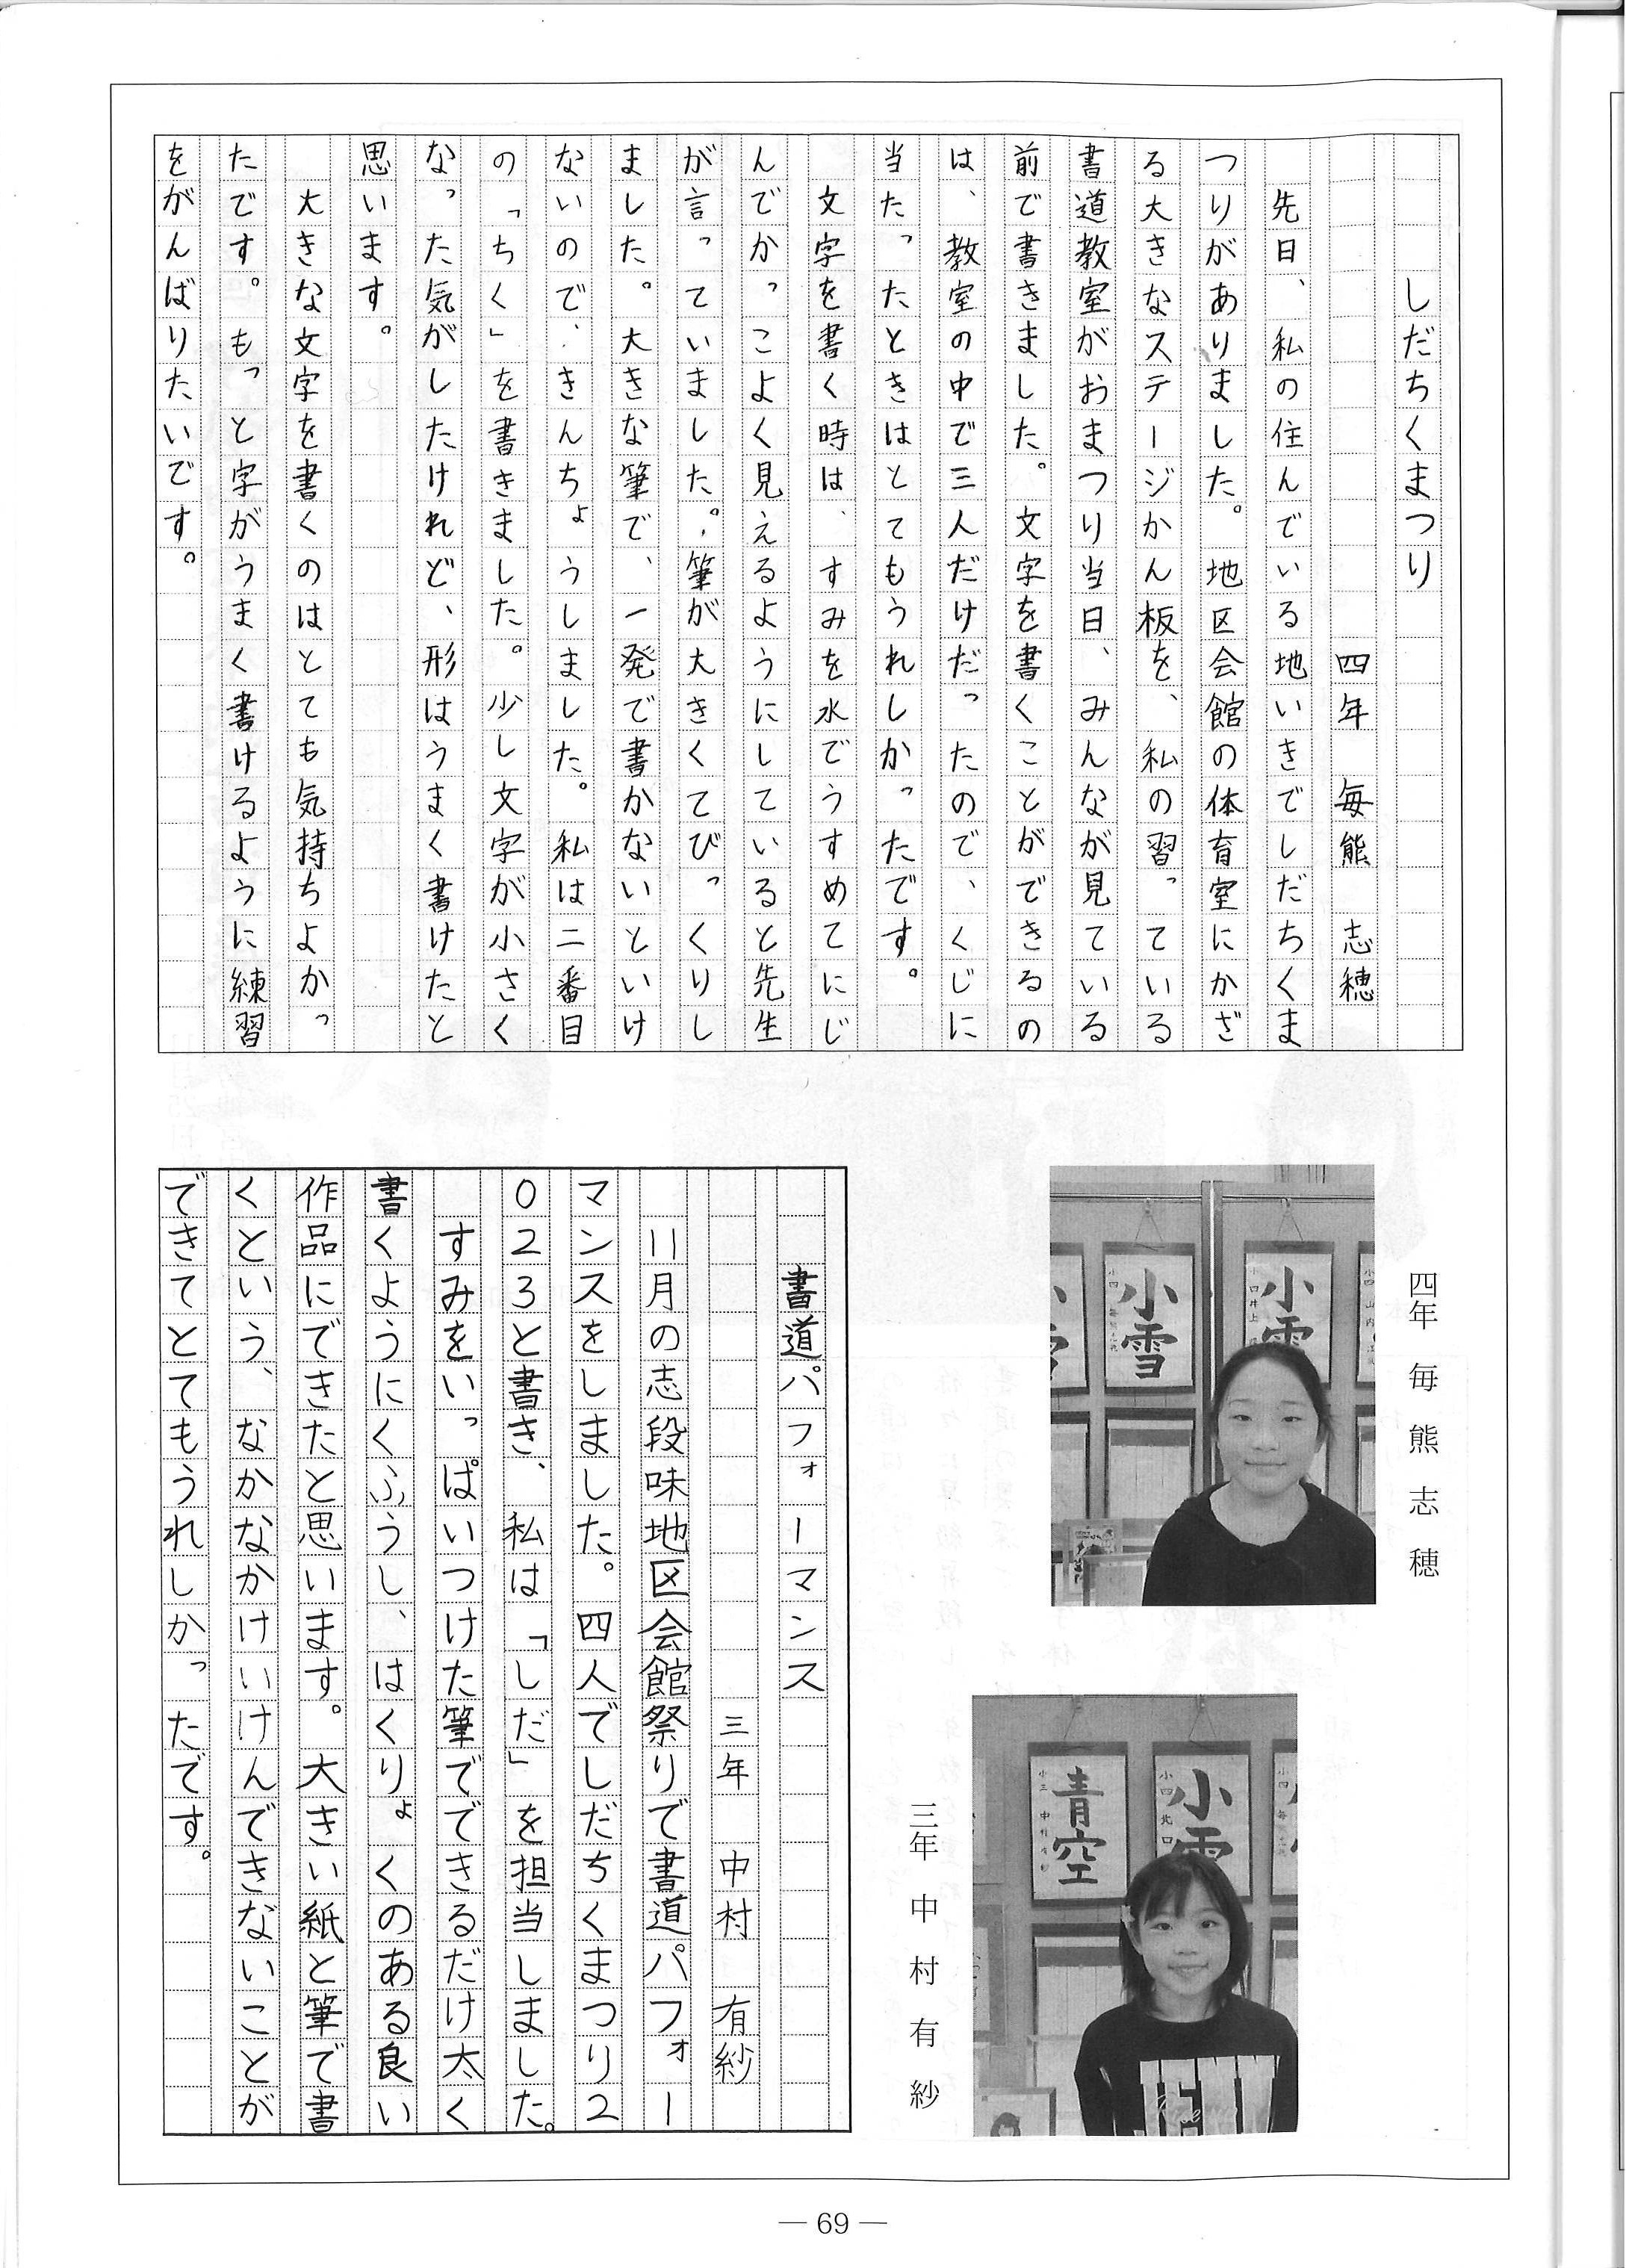 しだちくまつり
四年 毎熊 志穂
先日、私の住んでいる地いきでしだちくま
つりがありました。地区会館の体育室にかざ
る大きなステージかん板を、私の習っている
書道教室がおまつり当日、みんなが見ている
前で書きました。文字を書くことができるの
は、教室の中で三人だけだったので、くじに
当たったときはとてもうれしかったです。
文字を書く時は、すみを水でうすめてにじ
んでかっこよく見えるようにしていると先生
が言っていました。筆が大きくてびっくりし
ました。大きな筆で、一発で書かないといけ
ないので、きんちょうしました。私は二番目
の「ちく」を書きました。少し文字が小さく
なった気がしたけれど、形はうまく書けたと
思います。
大きな文字を書くのはとても気持ちよかっ
たです。もっと字がうまく書けるように練習
をがんばりたいです。
四年 毎熊志穂
小雪
小四
小雪
小四 井上
書道パフォーマンス
三年 中村 有紗
11月の志段味地区会館祭りで書道パフォー
マンスをしました。四人でしだちくまつり2
023と書き、私は「しだ」を担当しました。
すみをいっぱいつけた筆でできるだけ太く
書くようにくふうし、はくりょくのある良い
作品にできたと思います。大きい紙と筆で書
くという、なかなかけいけんできないことが
できてとてもうれしかったです。
三年 中村有紗
小雪
小四 北口
青空
小三 中村有紗
— 69 —